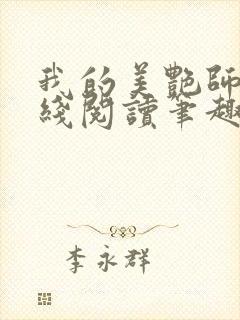 我的美艷師
綫閱讀筆趣
李永群